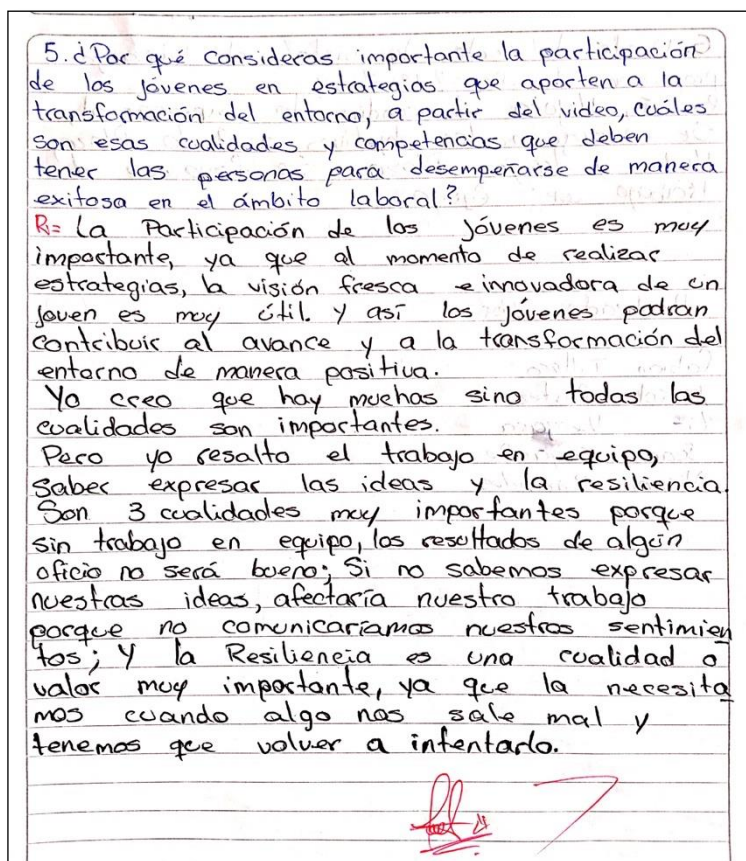 5. ¿Por qué consideras importante la participación
de los jóvenes en estrategias que aporten a la
transformación del entorno, a partir del video, cuáles
son esas cualidades y competencias que deben
tener las personas para desempeñarse de manera
exitosa en el ámbito laboral?
R= La Participación de los jóvenes es muy
importante, ya que al momento de realizar
estrategias, la visión fresca e innovadora de un
joven es muy útil. y así los jóvenes podran
contribuir al avance y a la transformación del
entorno de manera positiva.
Yo creo que hay muchas sino todas las
cualidades son importantes.
Pero yo resalto el trabajo en equipo,
saber expresar las ideas y la resiliencia.
Son 3 cualidades muy importantes porque
sin trabajo en equipo, los resultados de algún
oficio no será bueno; Si no sabemos expresar
nuestras ideas, afectaría nuestro trabajo
porque no comunicaríamos nuestros sentimien
tos; y la Resiliencia es una cualidad o
valor muy importante, ya que la necesita
mos cuando algo nos sale mal y
tenemos que volver a intentarlo.